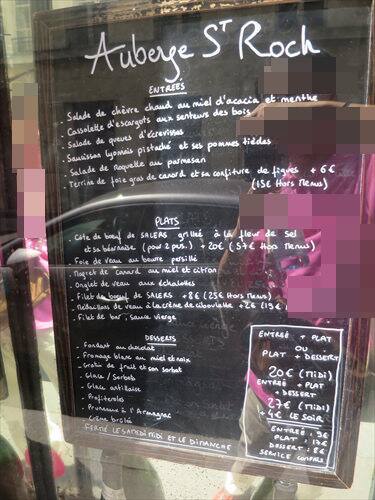 Auberge St Roch
ENTREÉS
- Salade de chèvre chaud au miel d'acacia et menthe
- Cassolette d'escargots aux senteurs des bois
- Salade de queues d'écrevisses
- Saucisson lyonnais pistaché et ses pommes tièdes
- Salade de roquette au parmesan
- Terrine de foie gras de canard et sa confiture de figues + 6€
(15€ Hors Menus)
PLATS
- Côte de bœuf de SALERS grillée à la fleur de sel
et sa béarnaise (pour 2 pers.) + 20€ (57€ Hors Menus)
- Foie de veau au beurre persillé
- Magret de Canard au miel et citron
- Onglet de veau aux échalottes
- Filet de bœuf de SALERS + 8€ (25€ Hors Menus)
- Médaillons de veau à la crème de ciboulette + 2€ (19€
- Filet de bar, sauce vierge
DESSERTS
- Fondant au chocolat
- Fromage blanc au miel et noix
- Gratin de fruit et son sorbet
- Glace / Sorbets
- Glace antillaise
- Profiteroles
- Pruneaux à l'Armagnac
- Crème brûlée
FERMÉ LE SAMEDI MIDI ET LE DIMANCHE
ENTREÉ + PLAT
OU
PLAT + DESSERT
20€ (MIDI)
ENTREÉ + PLAT
+ DESSERT
27€ (MIDI)
+4€ LE SOIR
ENTREÉ : 9€
PLAT : 17€
DESSERT : 8€
SERVICE COMPRIS